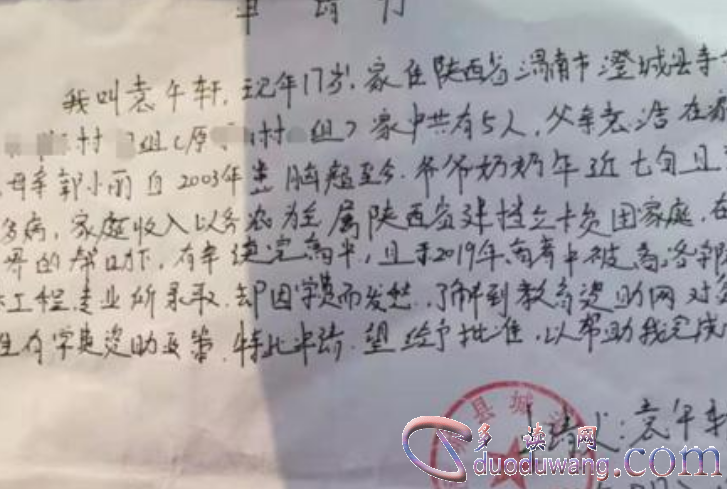 申请书
我叫袁午轩,现年17岁,家住陕西省渭南市澄城县寺
村 组(原 村 组)家中共有5人,父亲袁浩在家
母亲郭小丽自2003年 脑瘫至今.爷爷奶奶年近七旬且
多病,家庭收入以务农为主属陕西省建档立卡贫困家庭.在
界的帮助下,有幸读完高中,且于2019年高考中被
工程专业所录取.却因学费而发愁.了解到教育资助网对
生有学费资助政策.特此申请.望给予批准,以帮助我完成
县城
申请人:袁午轩
多读网
duoduwang.com